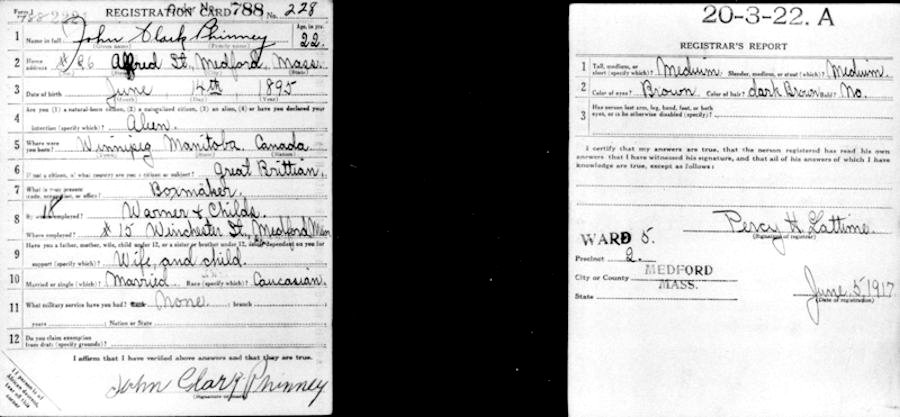 Form 1
REGISTRATION CARD
788
No. 228
1 Name in full John Clark Phinney
(Given name) (Family name)
Age, in yrs. 22
2 Home address #26 Alfred St, Medford, Mass.
(State)
3 Date of birth June 14th 1895
(Month) (Day) (Year)
4 Are you (1) a natural-born citizen, (2) a naturalized citizen, (3) an alien, (4) or have you declared your
intention (specify which)? Alien.
5 Where were you born? Winnipeg Manitoba Canada
(Town) (State) (Nation)
6 If not a citizen, of what country are you a citizen or subject? Great Brittian.
7 What is your present trade, occupation, or office? Boxmaker. 18
8 By whom employed? Warner & Childs.
Where employed? #15 Winchester St, Medford Mass
9 Have you a father, mother, wife, child under 12, or a sister or brother under 12, solely dependent on you for
support (specify which)? Wife and child.
10 Married or single (which)? Married Race (specify which)? Caucasian.
11 What military service have you had? Rank None branch
years Nation or State
12 Do you claim exemption from draft (specify grounds)?
I affirm that I have verified above answers and that they are true.
John Clark Phinney
If person is of African descent, tear off this corner
20-3-22. A
REGISTRAR'S REPORT
1 Tall, medium, or short (specify which)? Medium. Slender, medium, or stout (which)? Medium.
2 Color of eyes? Brown Color of hair? dark Brown Bald? No.
3 Has person lost arm, leg, hand, foot, or both
eyes, or is he otherwise disabled (specify)?
I certify that my answers are true, that the person registered has read his own
answers that I have witnessed his signature, and that all of his answers of which I have
knowledge are true, except as follows:
Percy H. Lattime.
(Signature of registrar)
WARD 5.
Precinct 2.
City or County MEDFORD
State MASS.
June 5, 1917
(Date of registration)